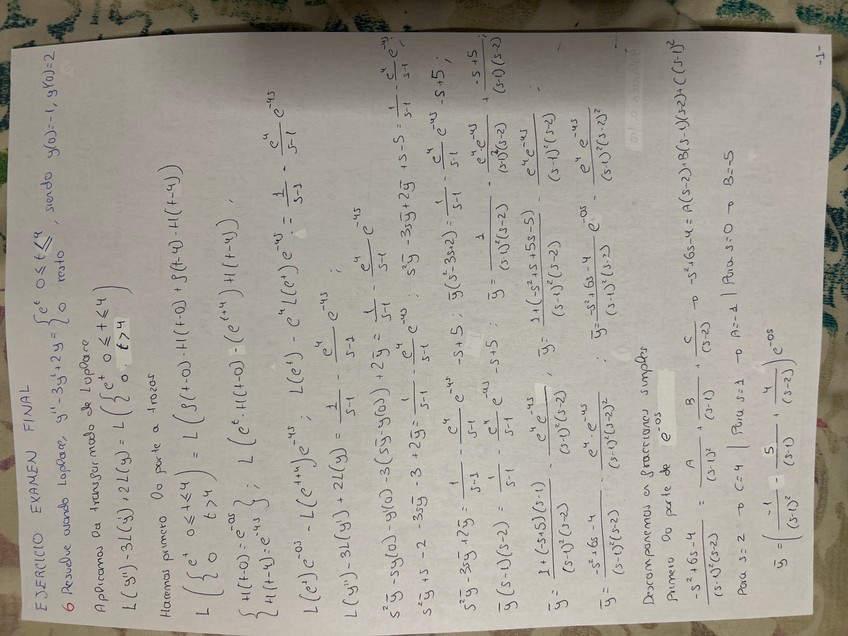 EJERCICIO EXAMEN FINAL
6 Resuelve usando Laplace, y''-3y'+2y = { e^t 0≤t≤4 ; 0 resto , siendo y(0)=-1, y'(0)=2
Aplicamos la transformada de Laplace
L(y'') - 3L(y') + 2L(y) = L({ e^t 0≤t≤4 ; 0 t>4 })
Hacemos primero la parte a trozos
L({ e^t 0≤t≤4 ; 0 t>4 }) = L(f(t-0)·H(t-0) + f(t-4)·H(t-4))
{ H(t-0)=e^-0s ; H(t-4)=e^-4s } ; L(e^t·H(t-0) - (e^t+4)H(t-4)) ;
L(e^t)e^-0s - L(e^t+4)e^-4s ; L(e^t) - e^4 L(e^t)e^-4s = 1/(s-1) - e^4/(s-1) e^-4s
L(y'') - 3L(y') + 2L(y) = 1/(s-1) - e^4/(s-1) e^-4s ;
s²ȳ - sy(0) - y'(0) - 3(sȳ - y(0)) + 2ȳ = 1/(s-1) - e^4/(s-1) e^-4s
s²ȳ + s - 2 - 3sȳ - 3 + 2ȳ = 1/(s-1) - e^4/(s-1) e^-4s ; s²ȳ - 3sȳ + 2ȳ + s - 5 = 1/(s-1) - e^4/(s-1) e^-4s ;
s²ȳ - 3sȳ + 2ȳ = 1/(s-1) - e^4/(s-1) e^-4s - s + 5 ; ȳ(s²-3s+2) = 1/(s-1) - e^4/(s-1) e^-4s - s + 5 ;
ȳ(s-1)(s-2) = 1/(s-1) - e^4/(s-1) e^-4s - s + 5 ; ȳ = 1/((s-1)²(s-2)) - e^4 e^-4s/((s-1)²(s-2)) + (-s+5)/((s-1)(s-2)) ;
ȳ = (1+(-s+5)(s-1))/((s-1)²(s-2)) - e^4 e^-4s/((s-1)²(s-2)) ; ȳ = (1+(-s²+s+5s-5))/((s-1)²(s-2)) - e^4 e^-4s/((s-1)²(s-2)) ;
ȳ = (-s²+6s-4)/((s-1)²(s-2)) - e^4·e^-4s/((s-1)²(s-2)²) ; ȳ = (-s²+6s-4)/((s-1)²(s-2)) e^-0s - e^4 e^-4s/((s-1)²(s-2)²)
Descomponemos en fracciones simples
Primero la parte de e^-0s
(-s²+6s-4)/((s-1)²(s-2)) = A/(s-1)² + B/(s-1) + C/(s-2) → -s²+6s-4 = A(s-2)+B(s-1)(s-2)+C(s-1)²
Para s=2 → C=4 | Para s=1 → A=-1 | Para s=0 → B=-5
ȳ = ( -1/(s-1)² - 5/(s-1) + 4/(s-2) ) e^-0s
-1-